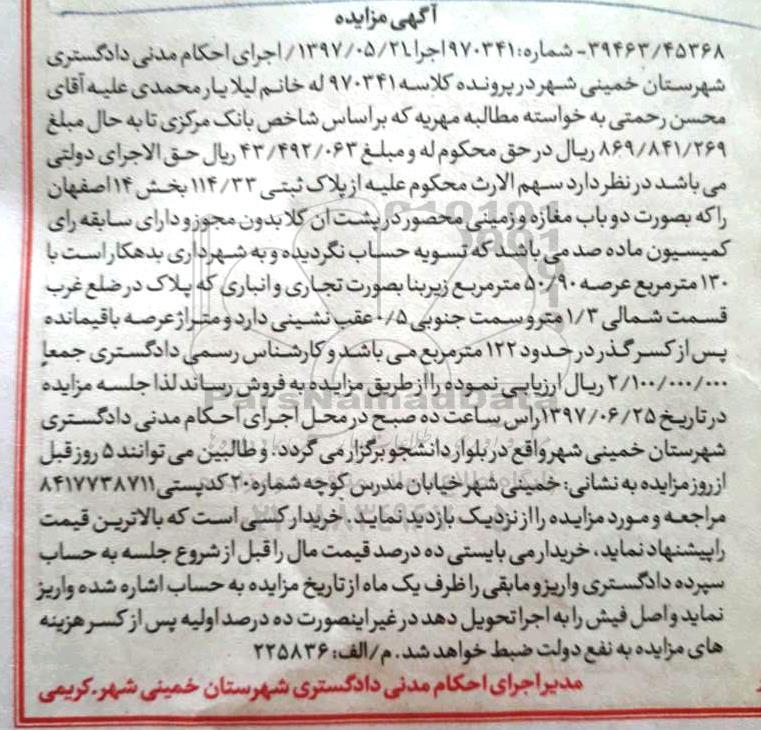 آگهی مزایده
۳۹۴۶۳/۴۵۳۶۸- شماره: ۹۷۰۳۴۱ اجرا ۱۳۹۷/۰۵/۲۱ / اجرای احکام مدنی دادگستری
شهرستان خمینی شهر در پرونده کلاسه ۹۷۰۳۴۱ له خانم لیلا یار محمدی علیه آقای
محسن رحمتی به خواسته مطالبه مهریه که بر اساس شاخص بانک مرکزی تا به حال مبلغ
۸۶۹/۸۴۱/۲۶۹ ریال در حق محکوم له و مبلغ ۴۳/۴۹۲/۰۶۳ ریال حق الاجرای دولتی
می باشد در نظر دارد سهم الارث محکوم علیه از پلاک ثبتی ۱۱۴/۳۳ بخش ۱۴ اصفهان
را که بصورت دو باب مغازه و زمینی محصور در پشت ان کلا بدون مجوز و دارای سابقه رای
کمیسیون ماده صد می باشد که تسویه حساب نگردیده و به شهرداری بدهکار است با
۱۳۰ مترمربع عرصه ۵۰/۹۰ مترمربع زیربنا بصورت تجاری و انباری که پلاک در ضلع غرب
قسمت شمالی ۱/۳ متر و سمت جنوبی ۰/۵ عقب نشینی دارد و متراژ عرصه باقیمانده
پس از کسر گذر در حدود ۱۲۲ مترمربع می باشد و کارشناس رسمی دادگستری جمعا
۲/۱۰۰/۰۰۰/۰۰۰ ریال ارزیابی نموده را از طریق مزایده به فروش رساند لذا جلسه مزایده
در تاریخ ۱۳۹۷/۰۶/۲۵ راس ساعت ده صبح در محل اجرای احکام مدنی دادگستری
شهرستان خمینی شهر واقع در بلوار دانشجو برگزار می گردد. و طالبین می توانند ۵ روز قبل
از روز مزایده به نشانی: خمینی شهر خیابان مدرس کوچه شماره ۲۰ کدپستی ۸۴۱۷۷۳۸۷۱۱
مراجعه و مورد مزایده را از نزدیک بازدید نماید. خریدار کسی است که بالاترین قیمت
را پیشنهاد نماید، خریدار می بایستی ده درصد قیمت مال را قبل از شروع جلسه به حساب
سپرده دادگستری واریز و مابقی را ظرف یک ماه از تاریخ مزایده به حساب اشاره شده واریز
نماید و اصل فیش را به اجرا تحویل دهد در غیر اینصورت ده درصد اولیه پس از کسر هزینه
های مزایده به نفع دولت ضبط خواهد شد. م/الف: ۲۲۵۸۳۶
مدیر اجرای احکام مدنی دادگستری شهرستان خمینی شهر. کریمی
ParsNamadData